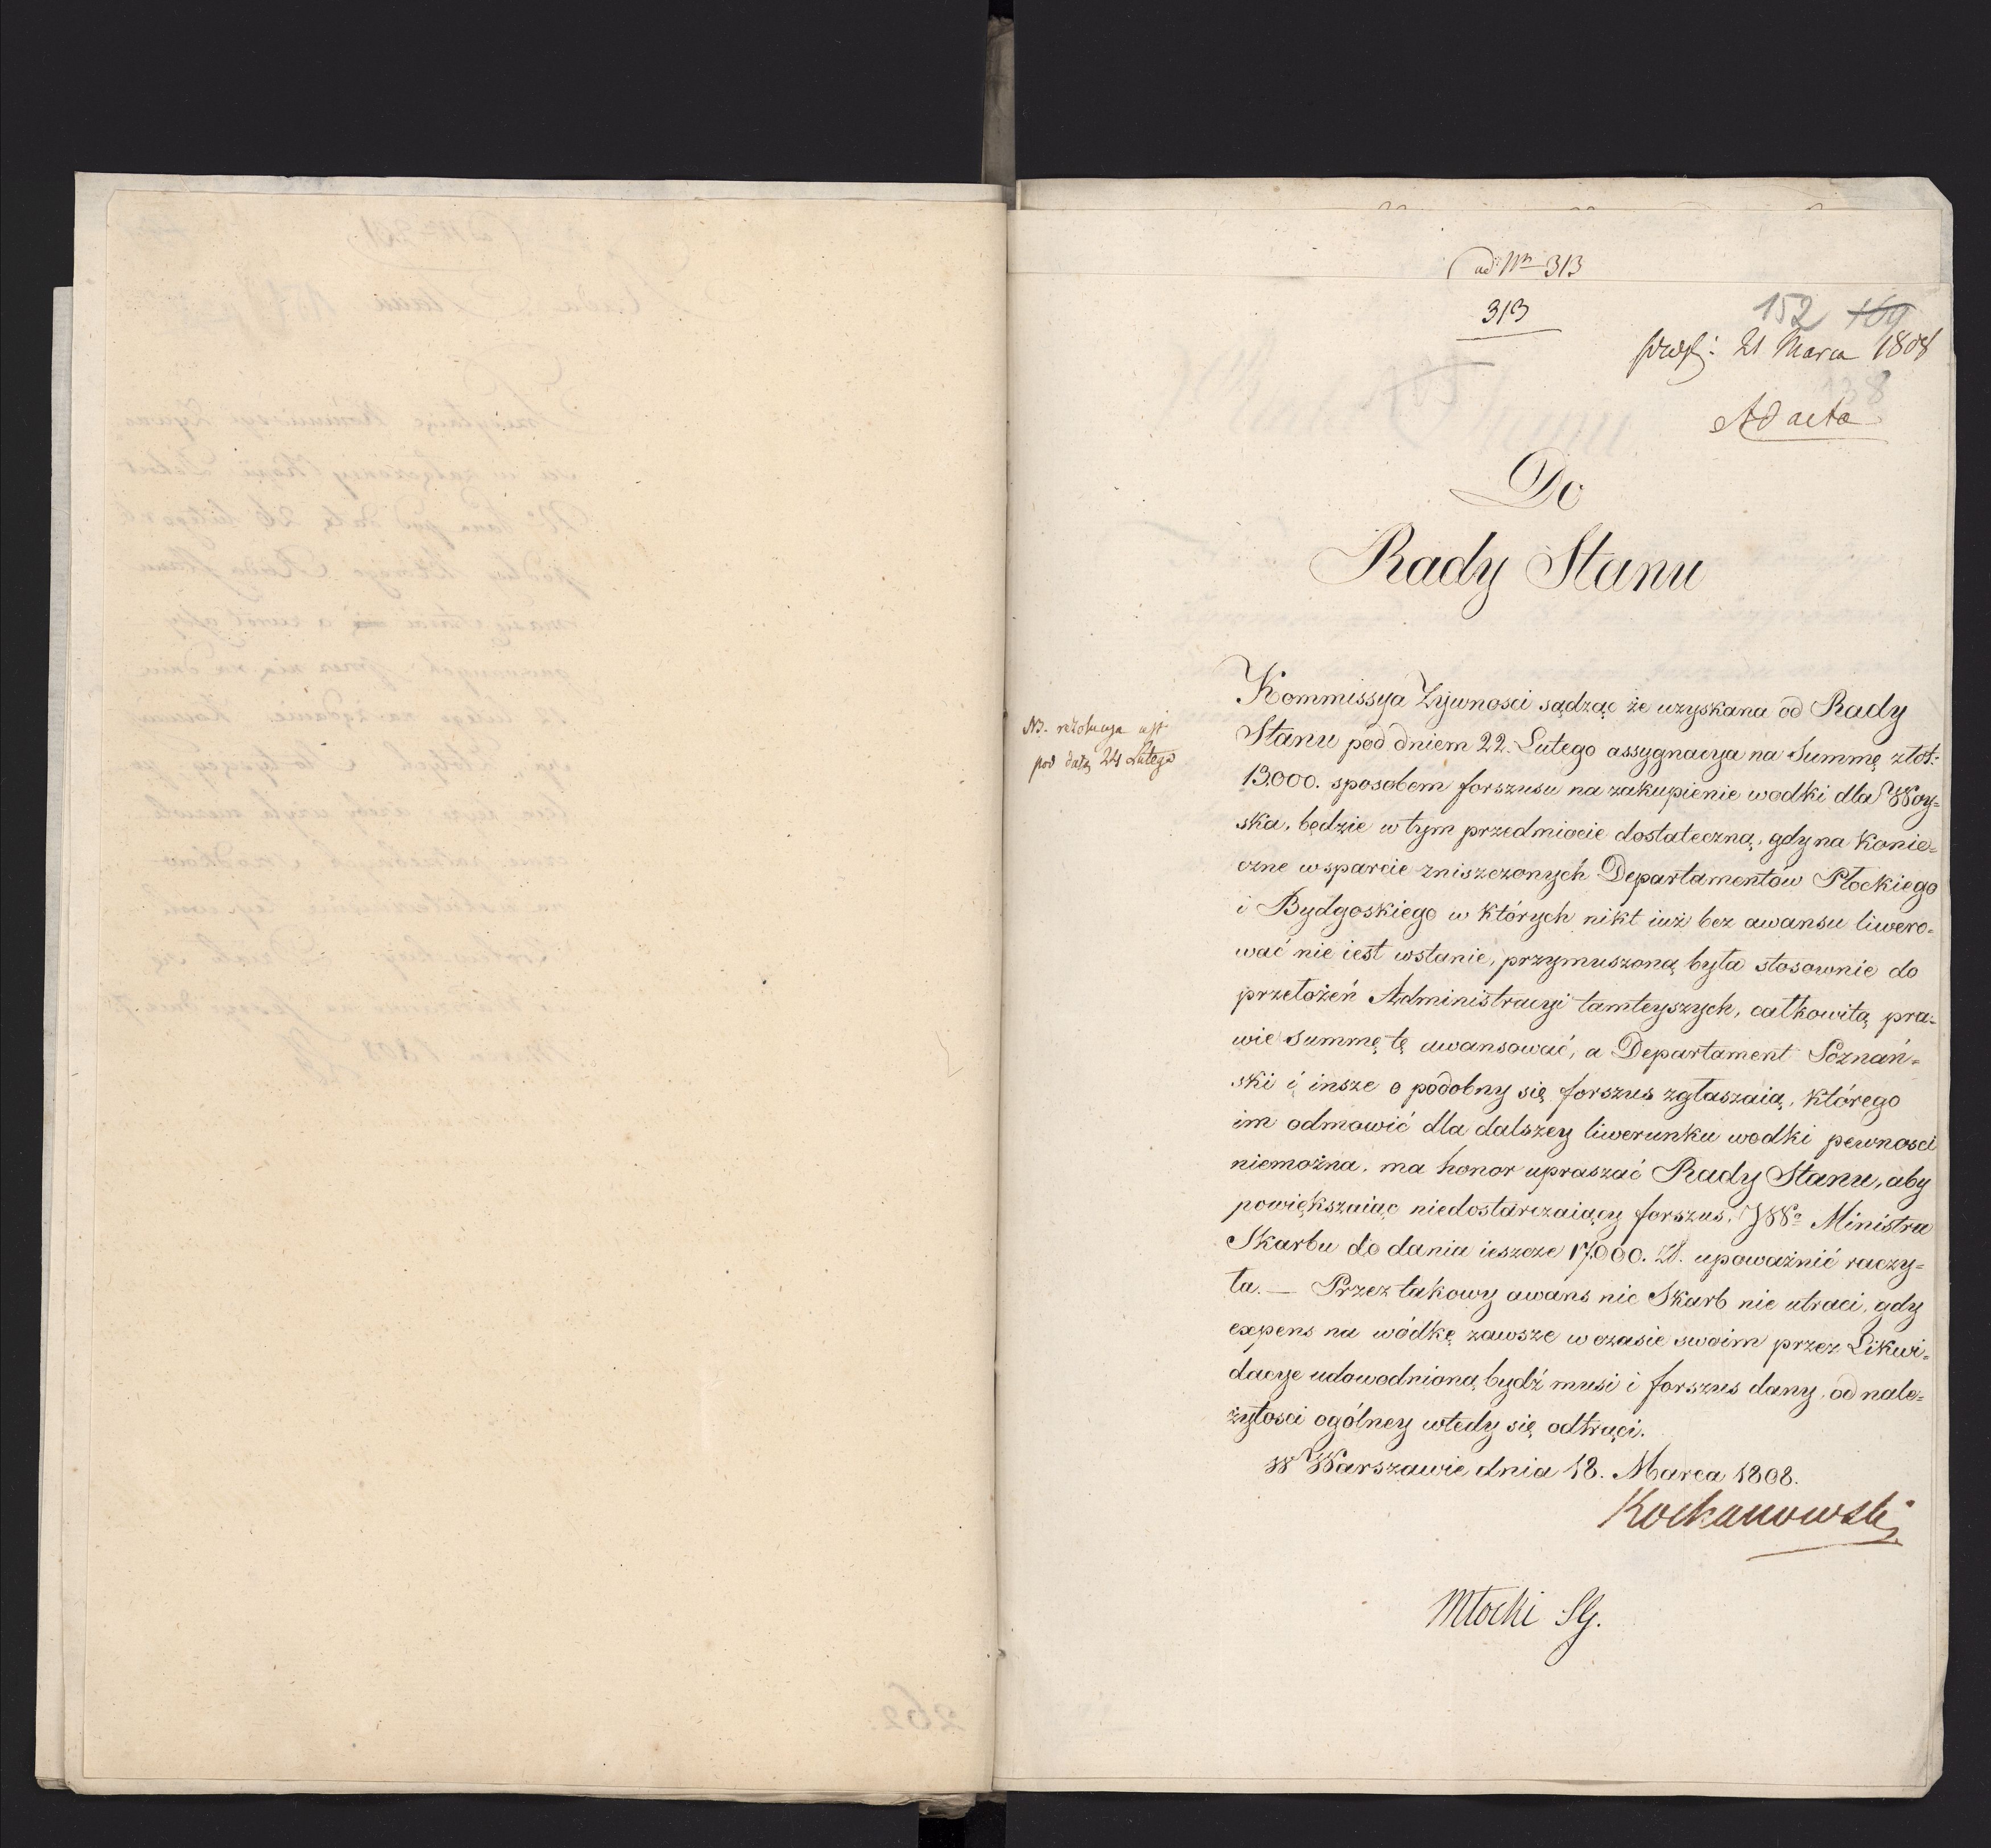 ad Nr 313
313
152 169
prest: 21 Marca 1808
138
Ad acta
Do
Rady Stanu
NB. rezolucya jest
pod datą 24 Lutego
Kommissya Zywnosci sądząc że uzyskana od Rady
Stanu pod dniem 22. Lutego assygnacya na Summę złot:
13000. sposobem forszusu na zakupienie wodki dla Woy=
ska, będzie w tym przedmiocie dostateczną, gdy na konie=
czne wsparcie zniszczonych Departamentów Płockiego
i Bydgoskiego w których nikt iuż bez awansu liwero=
wać nie iest wstanie, przymuszoną była stosownie do
przełożeń Administracyi tamteyszych, całkowitą pra=
wie Summę tę awansować, a Departament Poznań=
ski i insze o podobny się forszus zgłaszaią, którego
im odmowić dla dalszey liwerunku wodki pewnosci
niemożna, ma honor upraszać Rady Stanu, aby
powiększaiąc niedostarczaiący forszus, JWo Ministra
Skarbu do dania ieszcze 17000. Zł. upoważnić raczy=
ła. — Przez takowy awans nic Skarb nie utraci, gdy
expens na wódkę zawsze w czasie swoim przez Likwi=
dacye udowodnioną bydź musi i forszus dany, od nale=
żytosci ogólney wtedy się odtrąci.
W Warszawie dnia 18. Marca 1808.
Kochanowski
Młocki SG.